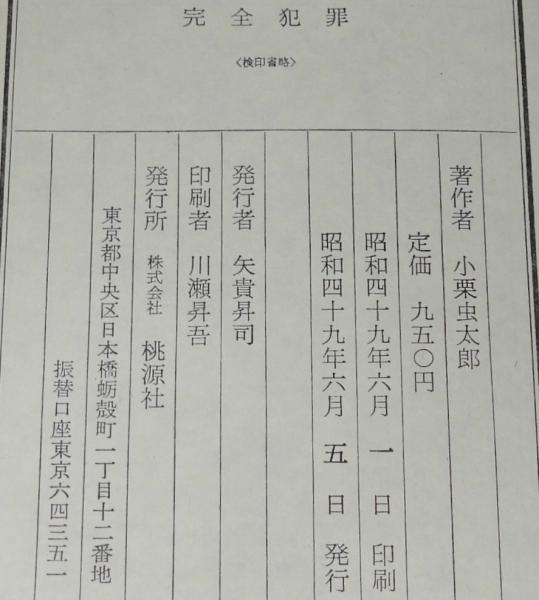 完全犯罪
〈検印省略〉
著作者 小栗虫太郎
定価 九五〇円
昭和四十九年六月 一 日 印刷
昭和四十九年六月 五 日 発行
発行者 矢貴昇司
印刷者 川瀬昇吾
発行所 株式会社 桃源社
東京都中央区日本橋蛎殻町一丁目十二番地
振替口座東京六四三五一